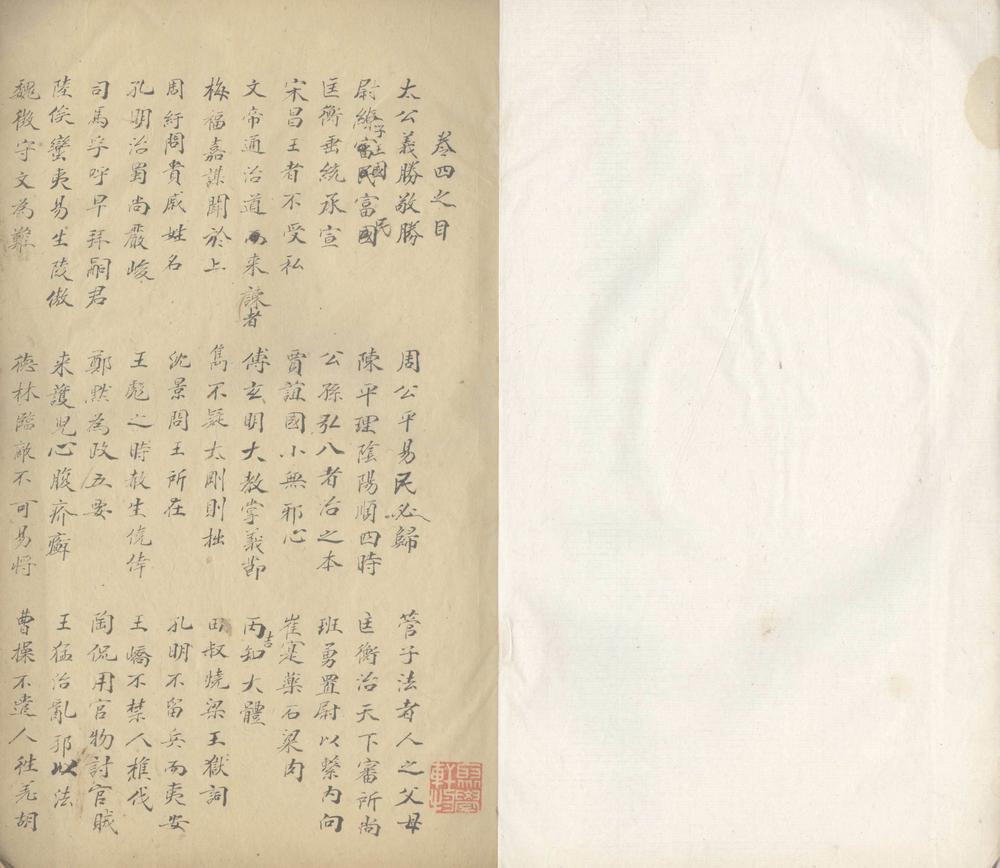 卷四之目
太公義勝敬勝　周公平易民必歸　管子法者人之父母
尉繚子王國富民　陳平理陰陽順四時　匡衡治天下審所尚
匡衡垂統承宣　公孫弘八者治之本　班勇置尉以繫內向
宋昌王者不受私　賈誼國小無邪心　崔寔藥石梁肉
文帝通治道而来諫者　傅玄明大教掌義節　丙吉知大體
梅福嘉謀聞於上　雋不疑太剛則拙　田叔燒梁王獄詞
周紆問貴戚姓名　沈景問王所在　孔明不留兵而夷安
孔明治蜀尚嚴峻　王彪之時赦生僥倖　王嶠不禁人樵伐
司馬孚呼早拜嗣君　鄭默為政五要　陶侃用官物討官賊
陸俟蠻夷易生陵傲　来護兒心腹疥癬　王猛治亂邦以法
魏徵守文為難　德林臨敵不可易將　曹操不遣人往羌胡